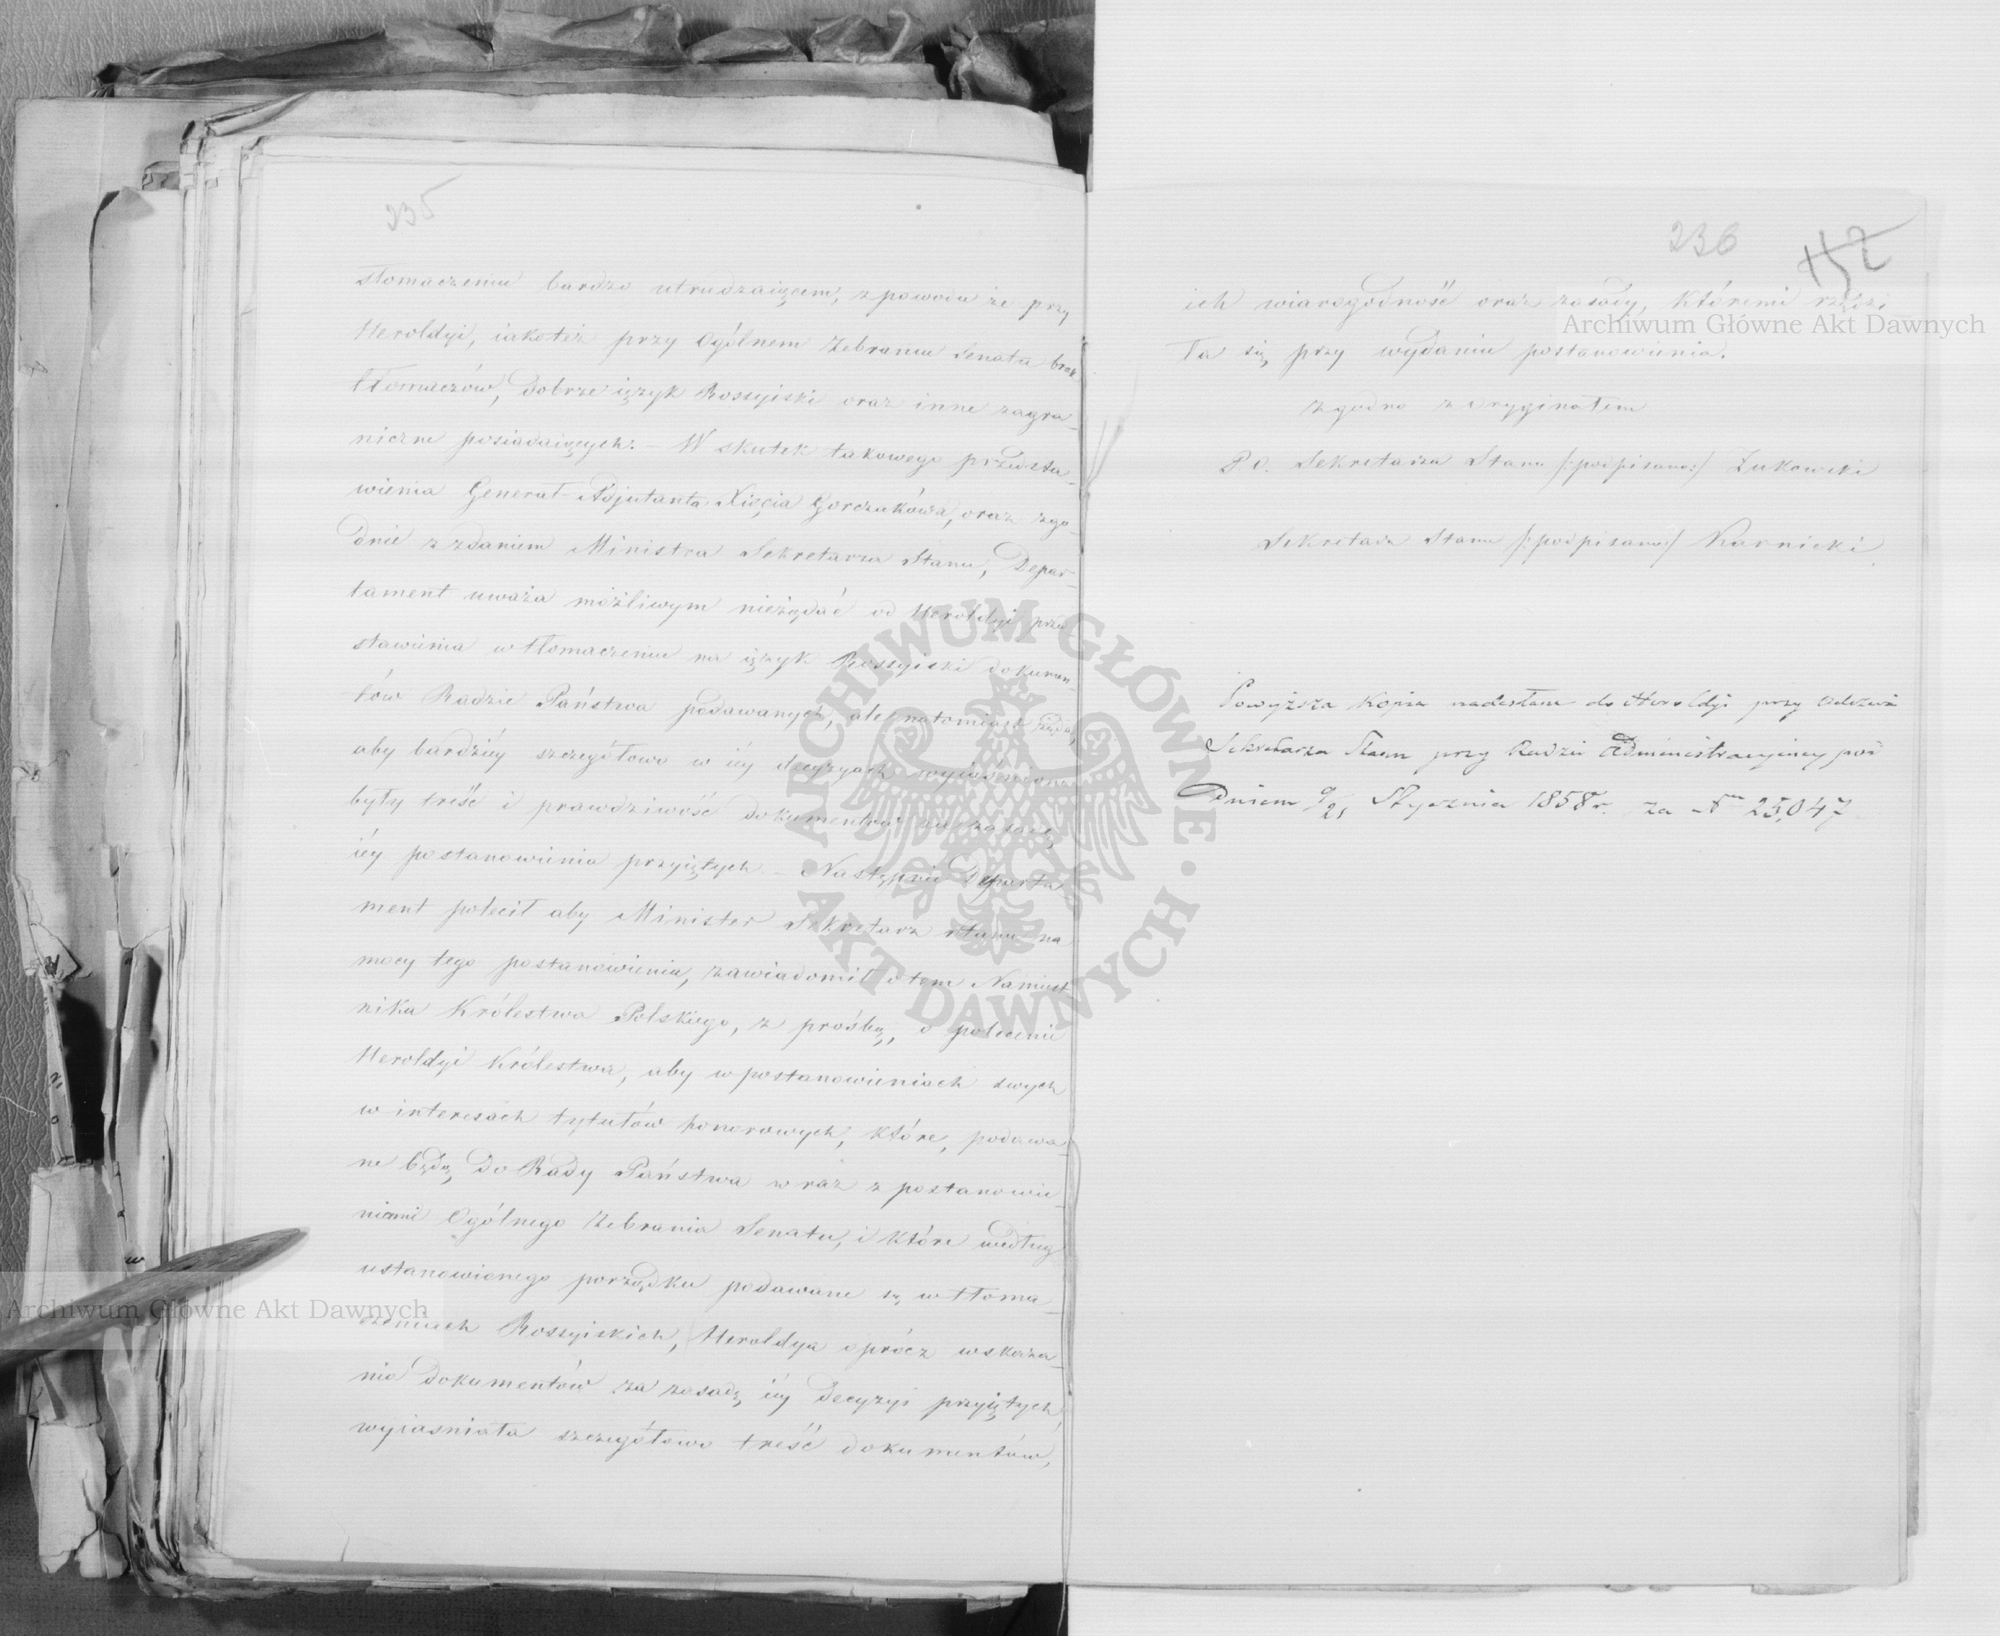 235
tłomaczeniu bardzo utrudzaiącem, z powodu że przy
Heroldyi, iakoteż przy Ogólnem Zebraniu Senatu brak
tłomaczów, dobrze ięzyk Rossyiski oraz inne zagra-
niczne posiadaiących. – W skutek takowego przedsta-
wienia Generał-Adjutanta Xięcia Gorczakówa, oraz zgo-
dnie z zdaniem Ministra Sekretarza Stanu, Depar-
tament uważa możliwym nieżądać od Heroldyi przed-
stawienia w tłomaczeniu na ięzyk Rossyiski dokumen-
tów Radzie Państwa podawanych, ale natomiast żąda,
aby bardziéy szczegółowo w iéy decyzyach wyiaśnione
były treść i prawdziwość dokumentów za zasadę
iéy postanowienia przyiętych. – Następnie Departa-
ment polecił aby Minister Sekretarz Stanu na
mocy tego postanowienia, zawiadomił o tem Namiest-
nika Królestwa Polskiego, z prośbą, o polecenie
Heroldyi Królestwa, aby w postanowieniach swych
w interesach tytułów honorowych, które, podawa-
ne będą do Rady Państwa wraz z postanowie-
niami Ogólnego Zebrania Senatu, i które według
ustanowionego porządku podawane są w tłoma-
czeniach Rossyiskich, Heroldya oprócz wskaza-
nia dokumentów za zasadę iéy decyzyi przyiętych,
wyiaśniała szczegółowo treść dokumentów,
236
152
ich wiarogodność oraz zasady, któremi rządzi-
ła się przy wydaniu postanowienia.
zgodno z oryginałem
P.O. Sekretarza Stanu /:podpisano:/ Żukowski
Sekretarz Stanu /:podpisano:/ Karnicki.
Powyższa kopia nadesłana do Heroldyi przy Odezwie
Sekretarza Stanu przy Radzie Administracyjney pod
Dniem 9/21 Stycznia 1858 r. za Nrm 25,047
Archiwum Główne Akt Dawnych
ARCHIWUM GŁÓWNE · AKT DAWNYCH ·
Archiwum Główne Akt Dawnych